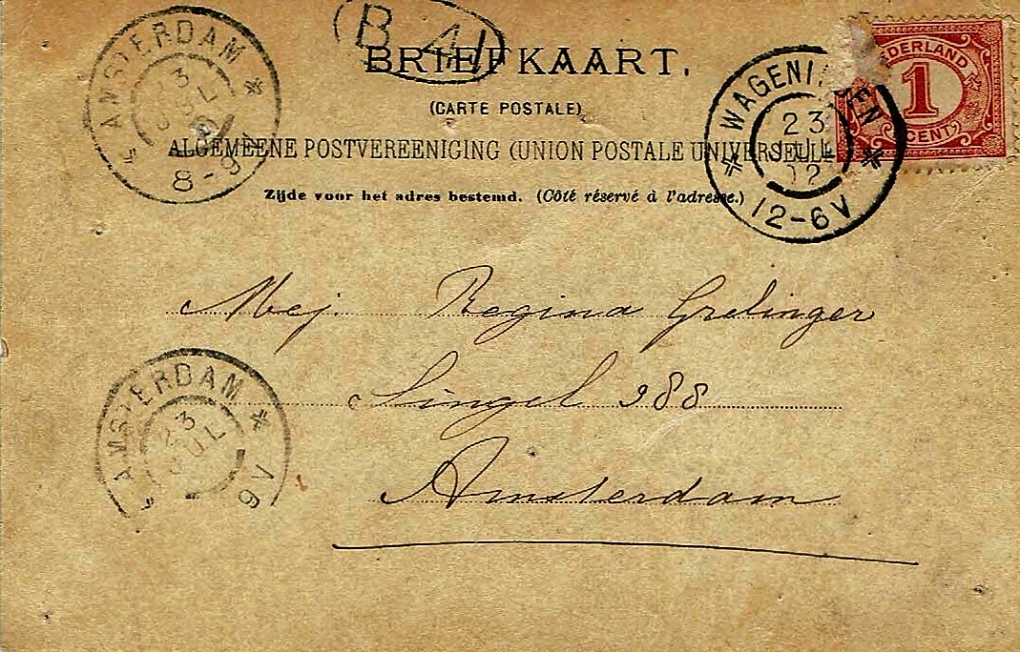 B 41
BRIEFKAART.
(CARTE POSTALE)
ALGEMEENE POSTVEREENIGING (UNION POSTALE UNIVERSELLE
Zijde voor het adres bestemd. (Côté réservé à l'adresse.)
AMSTERDAM
23
JUL
8-9V
WAGENINGEN
23
JUL
02
12-6V
NEDERLAND
1
CENT
Mej. Regina Grelinger
Singel 288
Amsterdam
AMSTERDAM
23
JUL